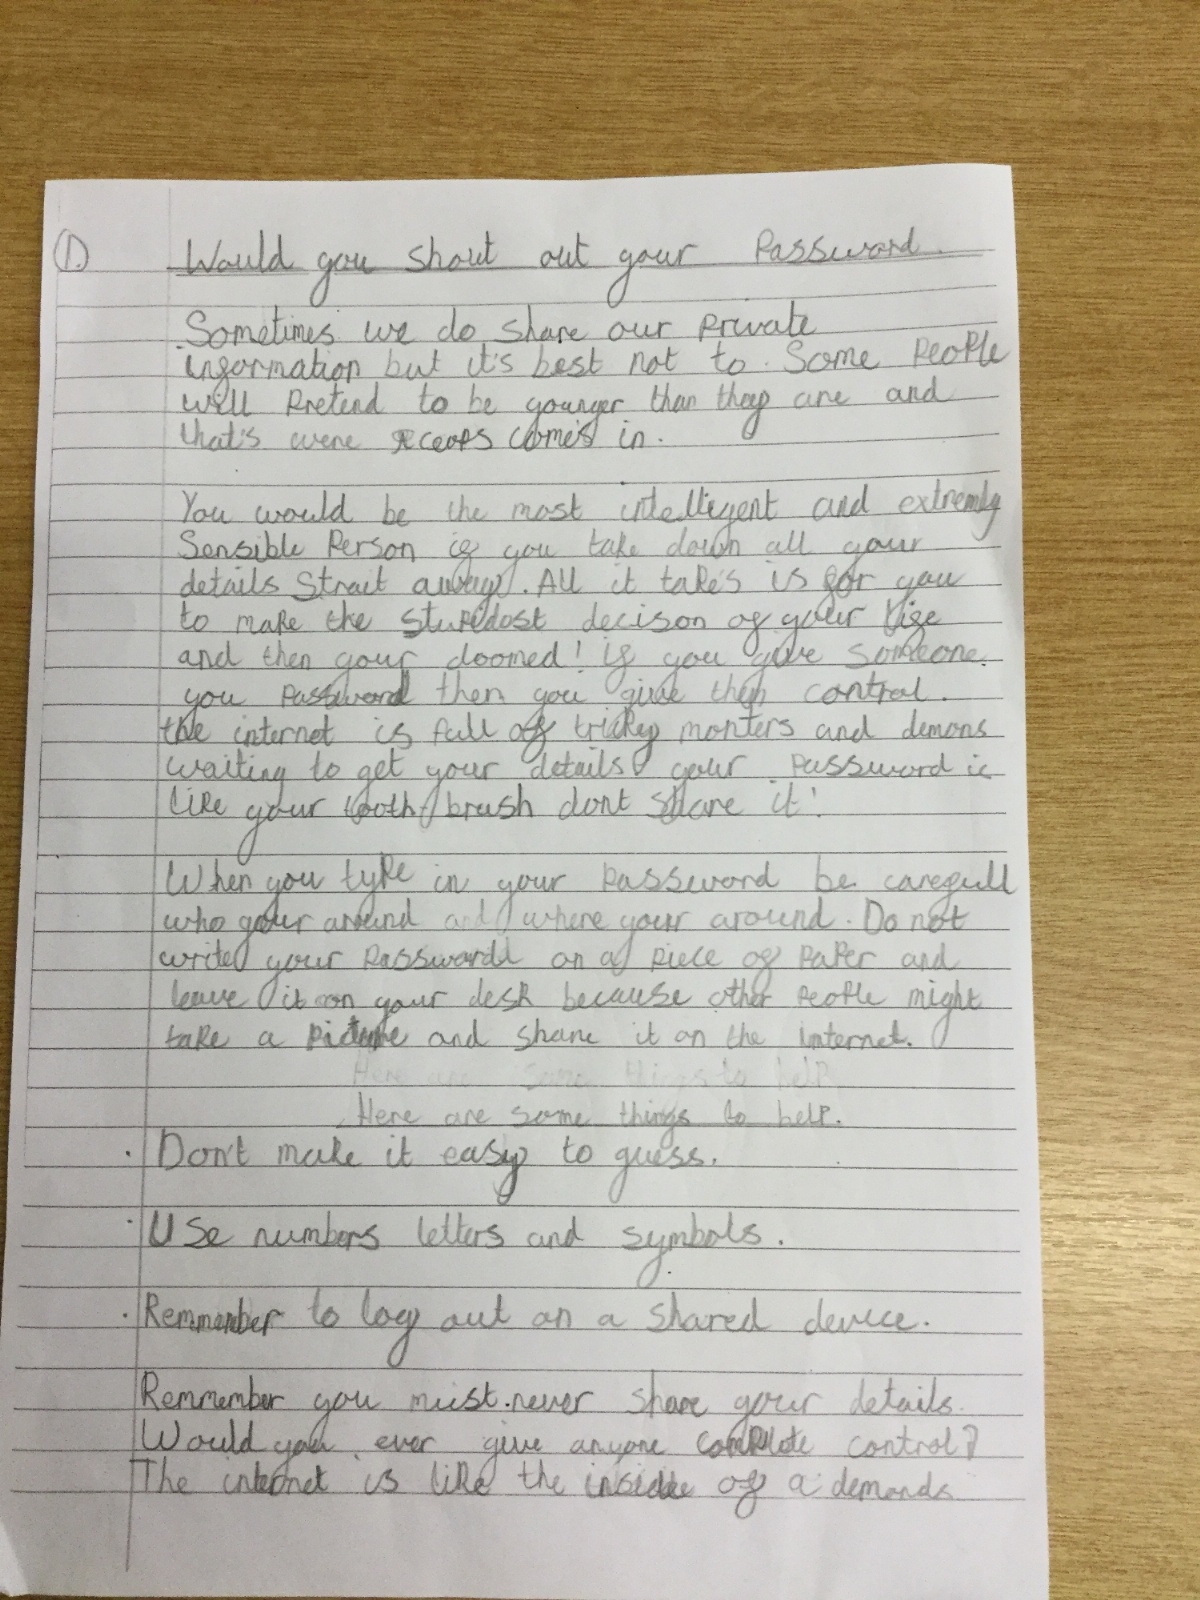 1. Would you shout out your Password.
Sometimes we do share our private
information but it's best not to. Some People
will Pretend to be younger than they are and
that's were comes in.
You would be the most intelligent and extremly
Sensible Person if you take down all your
details Strait away. All it take's is for you
to make the stupidost decison of your life
and then your doomed! if you give someone
you Password then you give them control.
the internet is full of tricky monters and demons
waiting to get your details your Password is
like your tooth brush dont share it!
When you type in your Password be carefull
who your around and where your around. Do not
write your Password on a piece of Paper and
leave it on your desk because other People might
take a Picture and share it on the internet.
Here are some things to help
Here are some things to help.
· Don't make it easy to guess.
· Use numbers letters and symbols.
· Remmember to log out on a shared device.
Remmember you must never share your details.
Would you ever give anyone complete control?
The internet is like the inside of a demonds